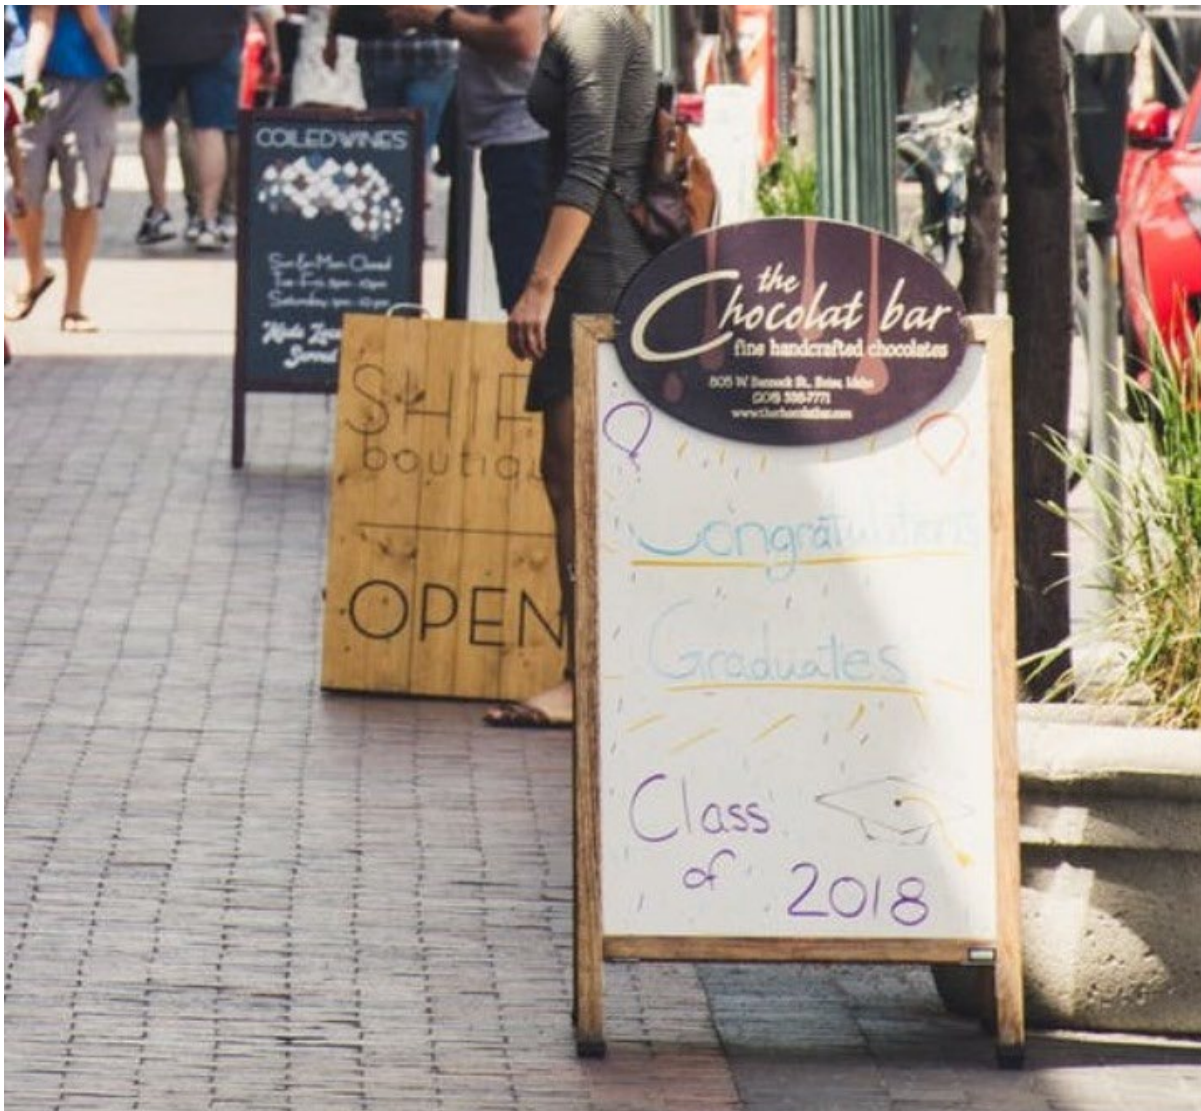 COILED WINES
Sun & Mon Closed
Saturday
Served
SHE
boutiqu
OPEN
the
Chocolat bar
fine handcrafted chocolates
805 W Bannock St., Boise, Idaho
(208) 338-7771
www.thechocolatbar.com
Congratulations
Graduates
Class
of
2018